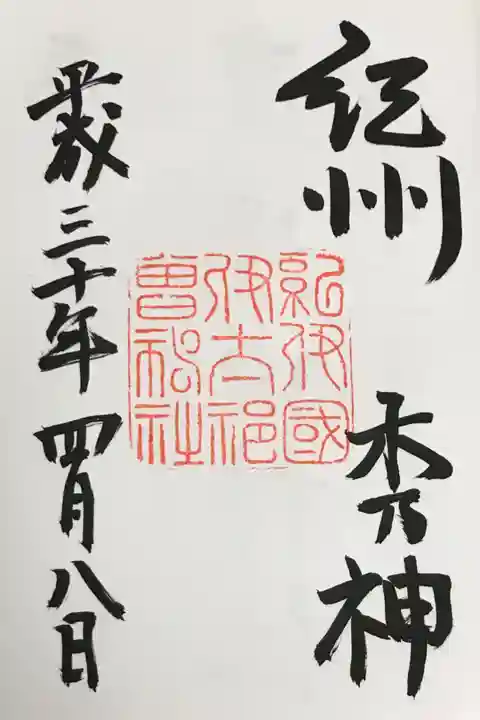 紀州 木乃神
紀伊國
伊太祁
曽神社
平成三十年 四月八日